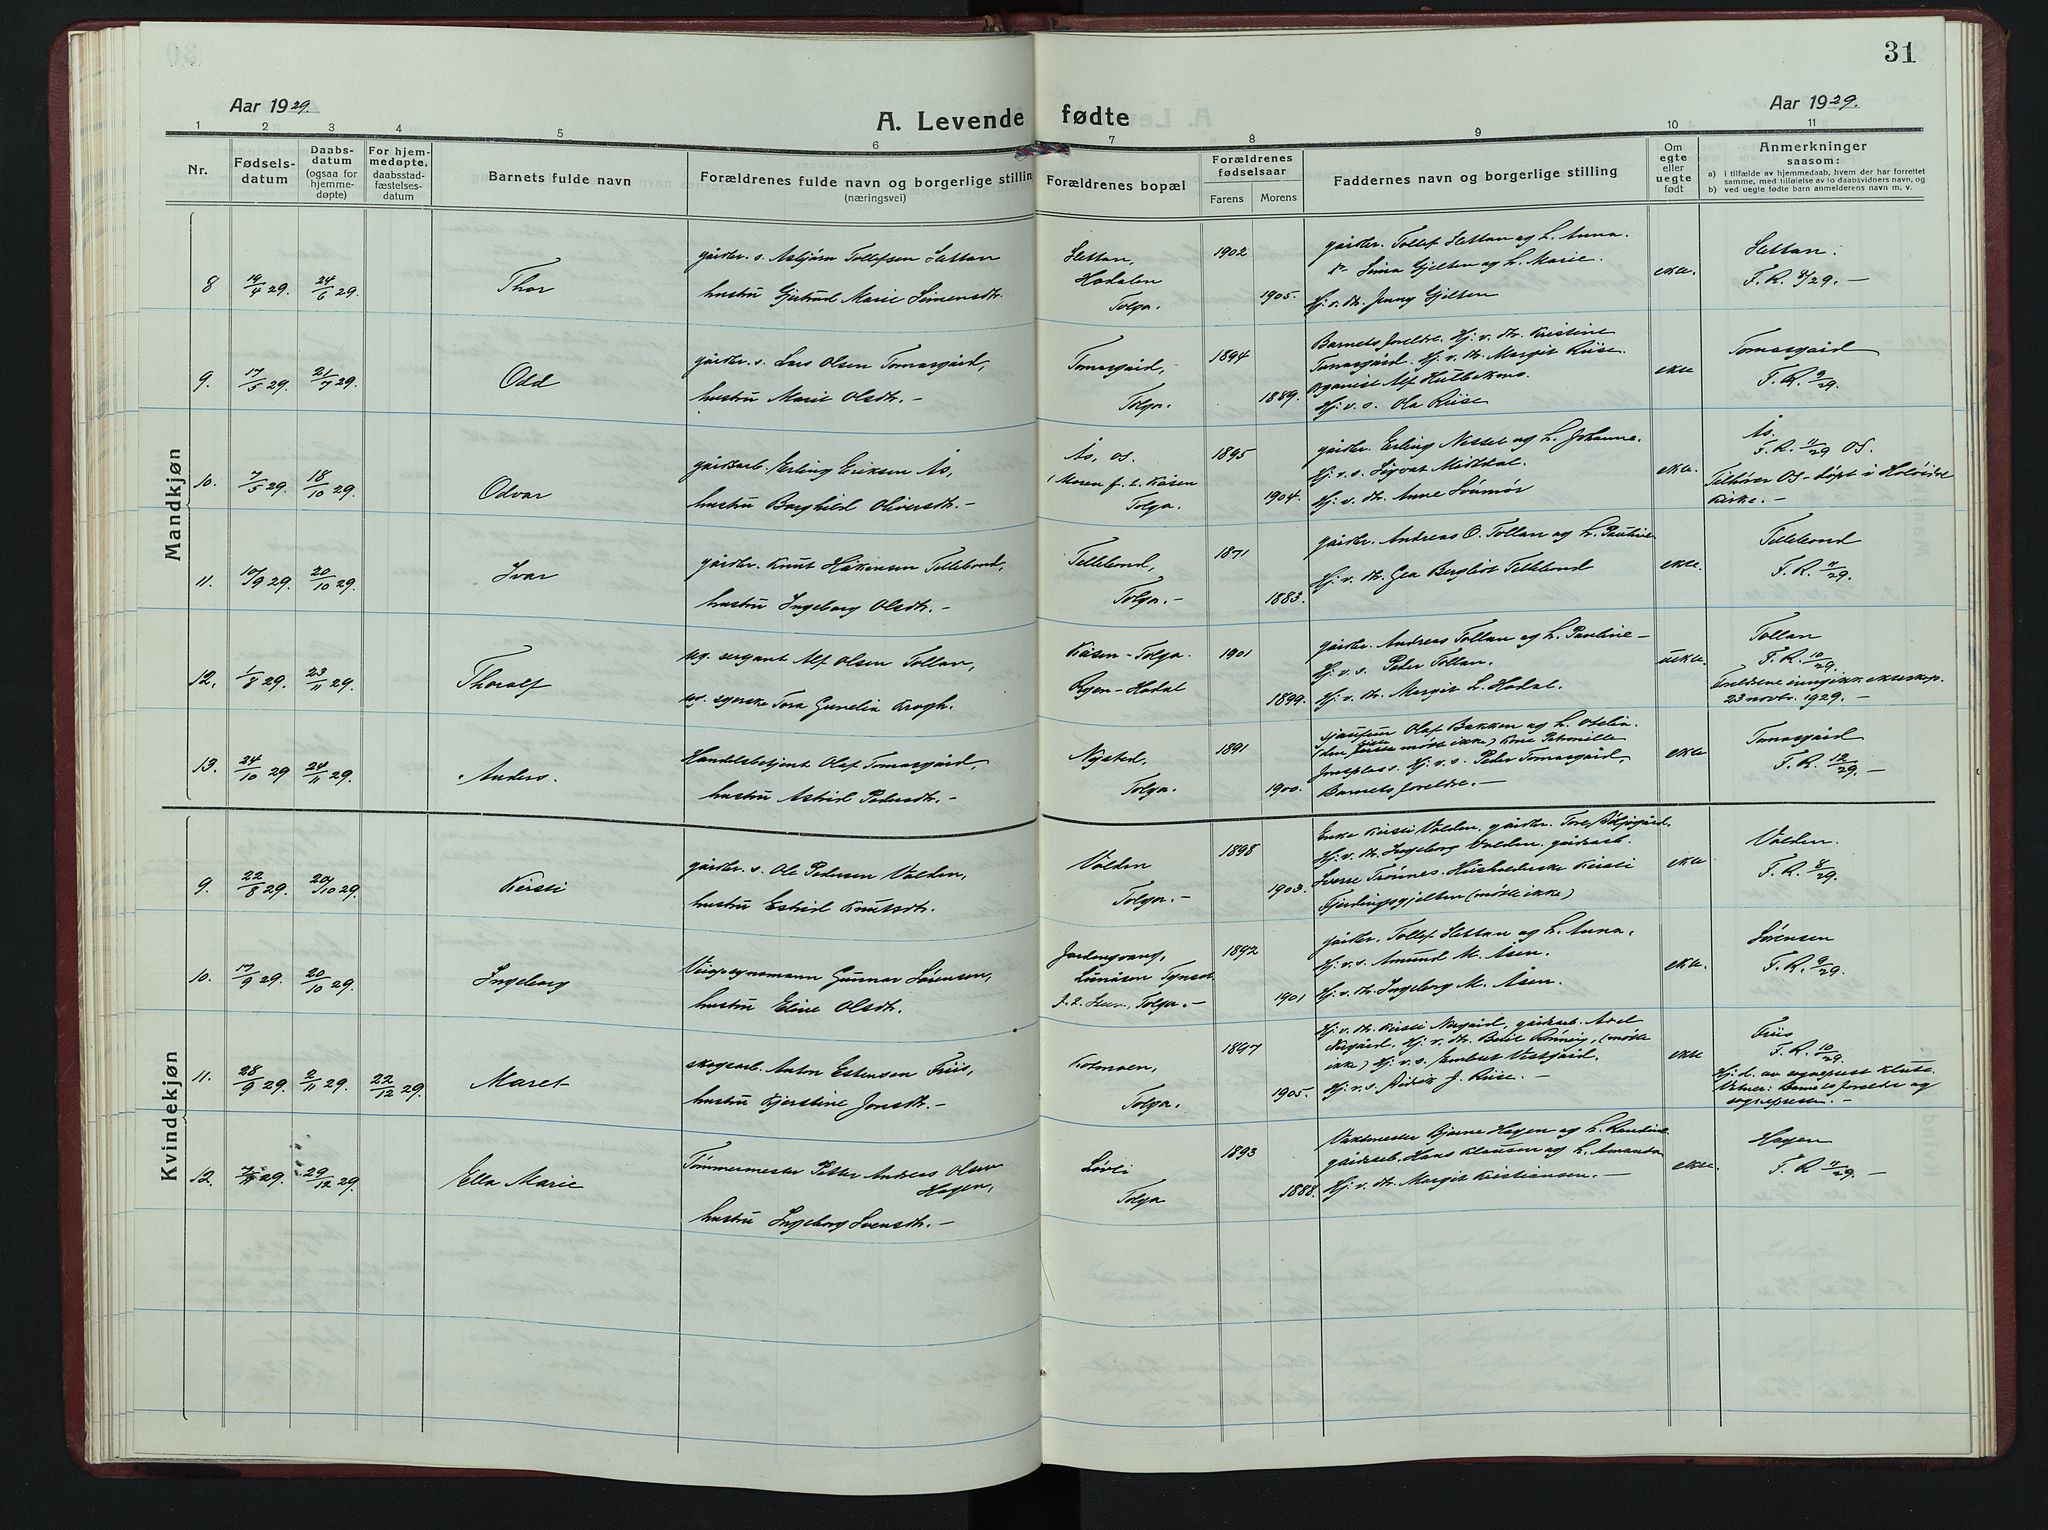 31
Aar 1929.
A. Levende fødte
Aar 1929.
1 2 3 4 5 6 7 8 9 10 11
Nr.
Fødsels-
datum
Daabs-
datum
(ogsaa for
hjemme-
døpte)
For hjem-
medøpte.
daabsstad-
fæstelses-
datum
Barnets fulde navn
Forældrenes fulde navn og borgerlige stilling
(næringsvei)
Forældrenes bopæl
Forældrenes
fødselsaar
Farens Morens
Faddernes navn og borgerlige stilling
Om
egte
eller
uegte
født
Anmerkninger
saasom:
a) i tilfælde av hjemmedaab, hvem der har forrettet
samme, med tilføielse av to daabsvidners navn, og
b) ved uegte fødte barn anmelderens navn m. v.
Mandkjøn
8 19/4 29. 24/6 29. Thor
gårdbr. s. Asbjørn Tollefsen Slettan
hustru Gjertrud Marie Simensdtr.
Slettan,
Hodalen
Tolga.
1902
1905.
gårdbr. Tollef Slettan og h. Anna.
Gjelten og h. Marie.
Hj. v. dtr. Jenny Gjelten
ekte.
Slettan.
9. 17/5 29. 21/7 29. Odd
gårdbr. s. Lars Olsen Tomasgård,
hustru Marie Olsdtr. -
Tomasgård,
Tolga.
1894
1889.
Barnets foreldre. Hj. v. dtr. Kristine
Tomasgård. Hj. v. dtr. Margit Riise.
Organist Alf Hulbekmo.
Hj. v. s. Ola Riise
ekte
Tomasgård
F. R. 9/29.
10. 7/5 29. 18/10 29. Odvar
gårdsarb. Erling Eriksen Ås,
hustru Borghild Oliversdtr. -
Ås, Os.
Moren f. t. Kåsen
Tolga.
1895
1904.
gårdbr. Erling Nesset og h. Johanne.
Hj. v. s. Sigvat Midtdal.
Hj. v. dtr. Anne
ekte.
Ås.
F. R. 11/29 Os.
Tilhører Os - døpt i Holøidal
kirke. -
11. 10/9 29. 20/10 29. Ivar
gårdbr. Knut Håkensen Tellebond,
hustru Ingeborg Olsdtr. -
Tellebond,
Tolga. -
1871
1883.
gårdbr. Andreas O. Tollan og h. Pauline
Hj. v. dtr. Gea Bergliot Tellebond
ekte.
Tellebond
F. R. 11/29.
12. 1/8 29. 23/11 29. Thoralf
ug. sersjant Alf Olsen Tollan,
ug. syerske Tora Gunelia Krogh.
Kåsen - Tolga.
Ryen - Hodal
1901
1899.
gårdbr. Andreas Tollan og h. Pauline -
Hj. v. s. Peder Tollan.
Hj. v. dtr. Margit L. Hodal.
uekte.
Tollan
F. R. 10/29.
Foreldrene inngikk ekteskap
23 novbr. 1929. -
13. 24/10 29 24/11 29. Anders.
Handelsbetjent Olaf Tomasgård,
hustru Astrid Pedersdtr. -
Nysted,
Tolga.
1891
1900.
sjauffør Olaf Bakken og h. Otelia.
(den første møtte ikke) Kone Petronille
Jonsplass. Hj. v. s. Peder Tomasgård,
Barnets foreldre. -
ekte
Tomasgård
F. R. 12/29. -
Kvindekjøn
9. 22/8 29. 20/10 29. Kirsti
gårdbr. s. Ole Pedersen Volden,
hustru Estrid Knutsdtr.
Volden
Tolga. -
1898
1903.
Enke Kirsti Volden. gårdbr. Tore
Hj. v. dtr. Ingeborg Volden. gårdsarb.
Sverre Trønnes. Husholderske Kirsti
Fjerdingsgjelten (møtte ikke)
ekte
Volden.
10. 17/9 29. 20/10 29. Ingeborg
Veiopsynsmann Gunnar Sørensen,
hustru Eline Olsdtr.
Tynset
f. t. Tolga. -
1892
1901
gårdbr. Tollef Slettan og h. Anna.
Hj. v. s. Amund M. Åsen.
Hj. v. dtr. Ingeborg M. Åsen.
ekte.
Sørensen
F. R. 9/29.
11. 28/9 29. 2/11 29. 22/12 29. Maret
skogsarb. Anton Estensen Friis,
hustru Kjerstine Jonsdtr. -
Kolmoen,
Tolga.
1897
1905.
Hj. v. dtr. Kirsti Nergård, gårdsarb. Axel
Nergård. Hj. v. dtr. Beret Rønning, (møtte
ikke) Hj. v. s. Embret Vestgård.
Hj. v. s. J. Riise. -
ekte
Friis
F. R. 10/29.
Hj. d. av sogneprest
Vitner: Barnets foreldre og
sogneprest. -
12. 29. 29/12 29. Ella Marie
Tømmermester Petter Andreas Olsen
Hagen,
hustru Ingeborg Svensdtr. -
Løvli
Tolga
1893
1888.
Vaktmester Bjarne Hagen og h.
gårdsarb. Hans Klausen og h. Amanda
Hj. v. dtr. Margit Kristiansen. -
ekte.
Hagen
F. R. 11/29. -